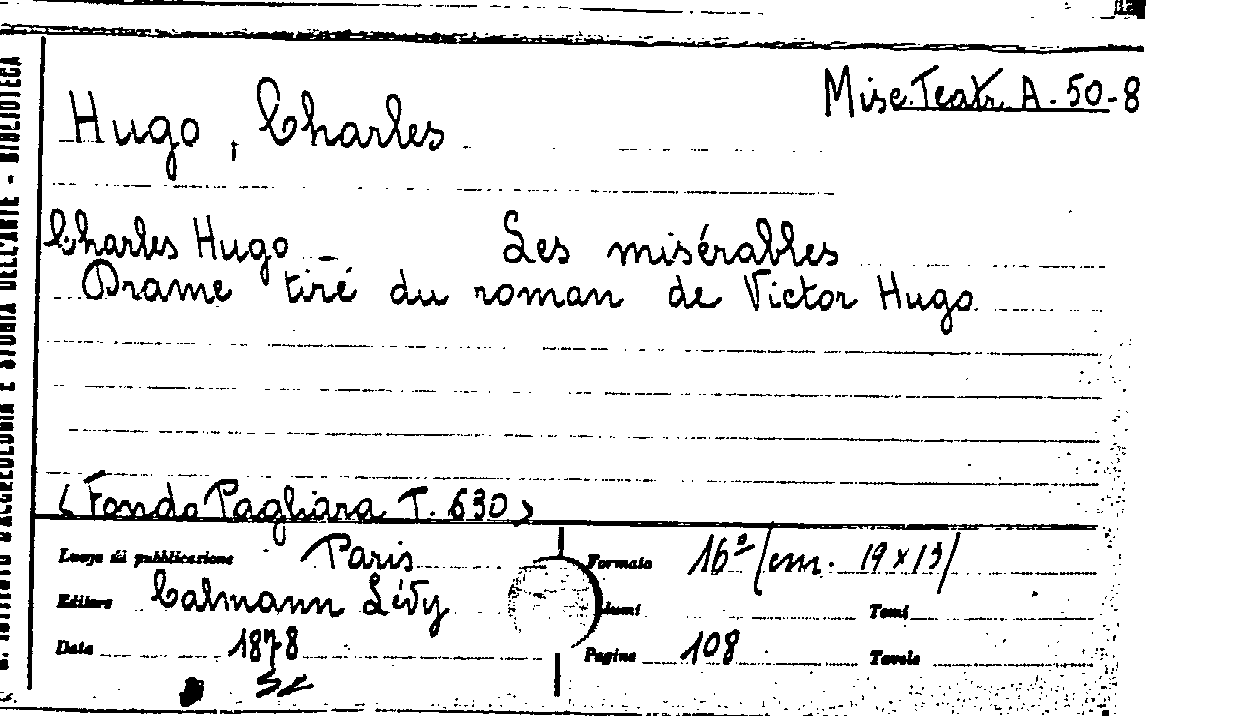 Misc. Teatr. A. 50-8
Hugo, Charles
Charles Hugo – Les misérables
Drame tiré du roman de Victor Hugo.
(Fondo Pagliara T. 630)
Luogo di pubblicazione Paris
Editore Calmann Lévy
Data 1878
Formato 16º/cm. 19x13/
Tomi
Pagine 108
Tavole
ISTITUTO D'ARCHEOLOGIA E STORIA DELL'ARTE - BIBLIOTECA